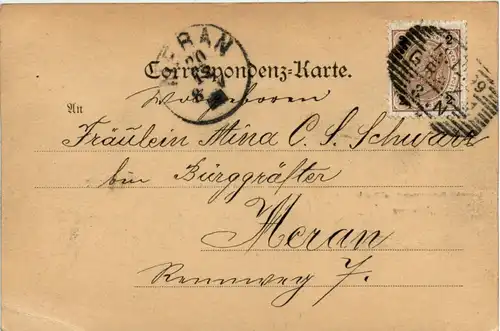 MERAN
20
Correspondenz-Karte.
Wohlgeboren
An
Fräulein Mina C. S. Schwarz
bei Burggräfler
Meran
Rennweg 7.